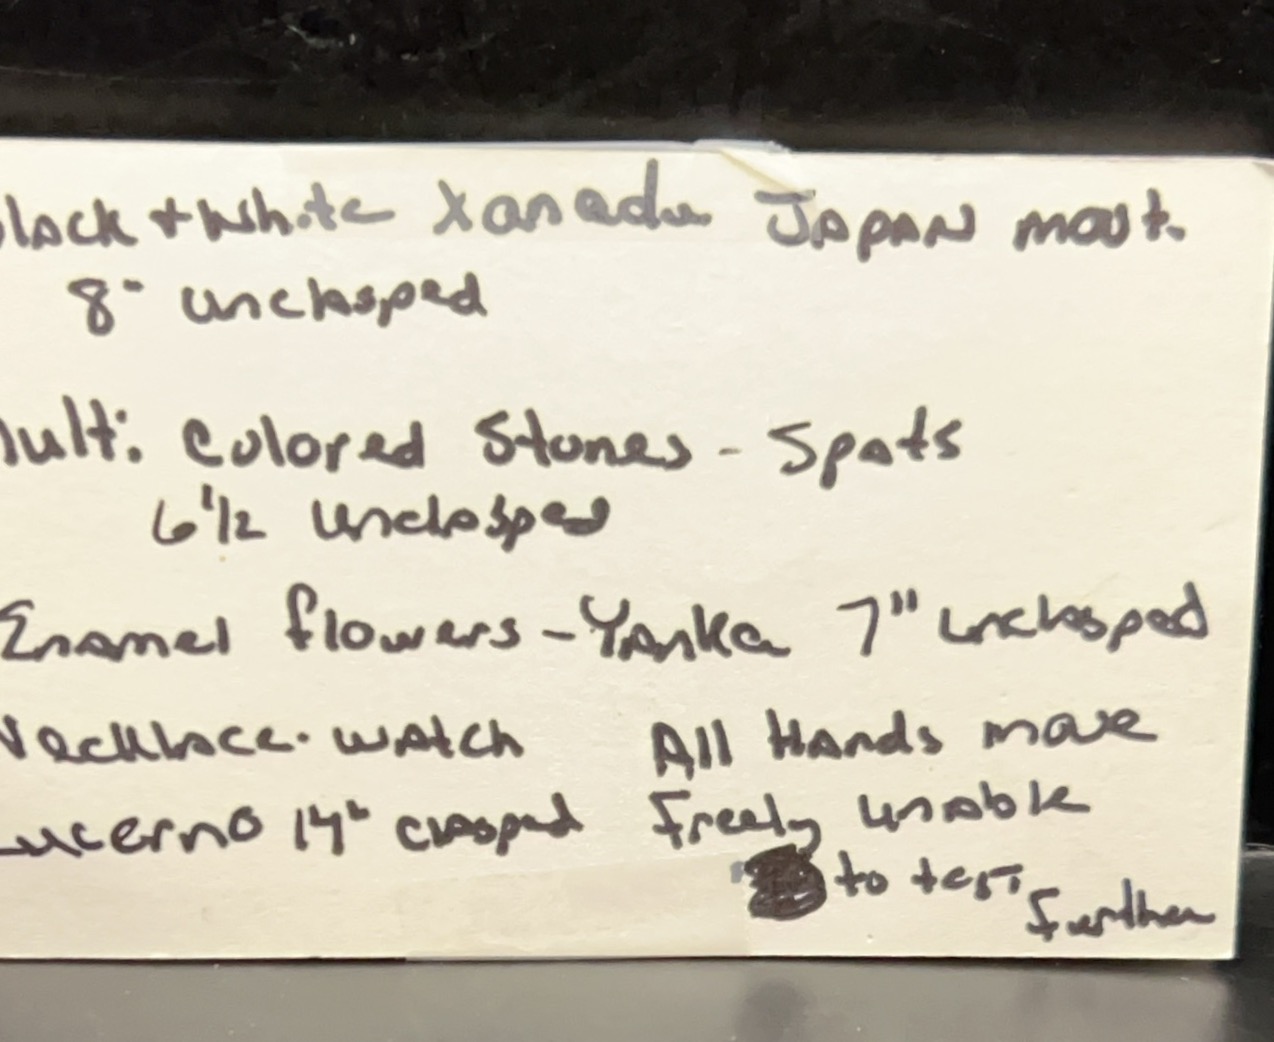 lack + White Xanadu JAPAN movt.
8" unclasped
ult: Colored Stones - Spots
6 1/2 unclasped
Enamel flowers - Yanka 7" unclasped
Necklace watch All Hands move
Lucerno 14" clasped freely unable
to test
further